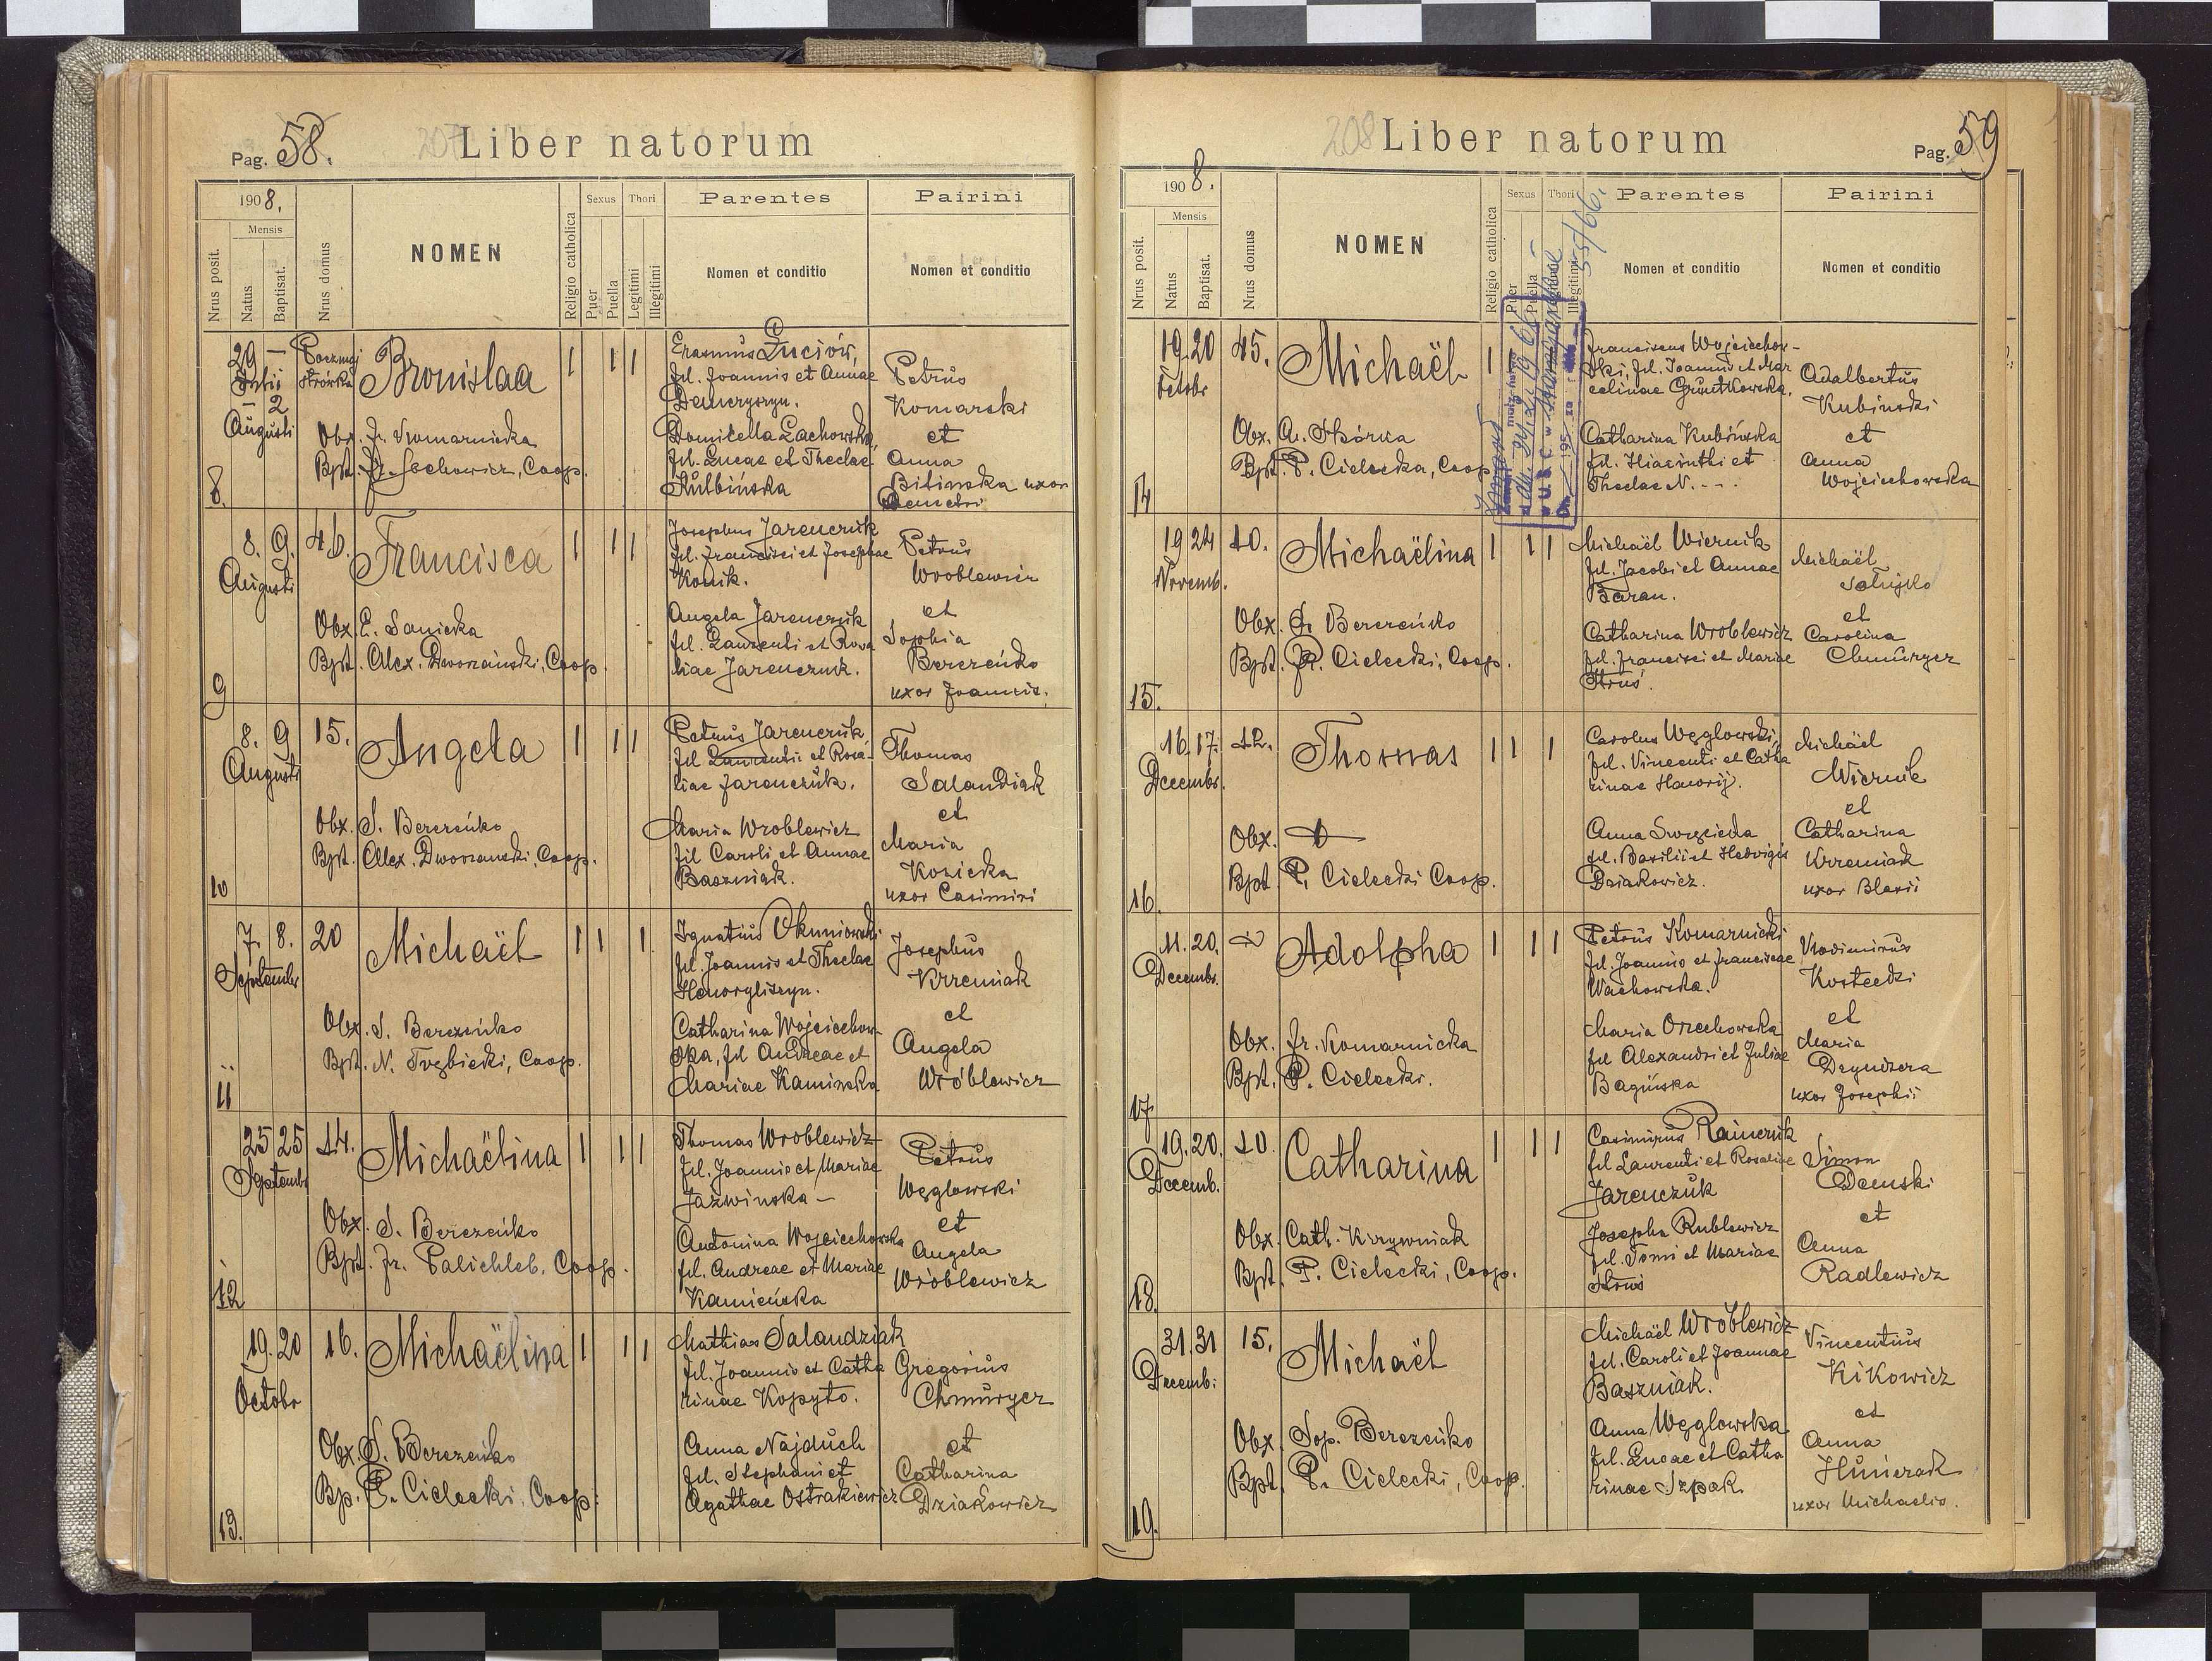 Pag. 58.
207
Liber natorum
1908.
Mensis
Nrus posit.
Natus
Baptisat.
Nrus domus
NOMEN
Religio catholica
Sexus
Puer
Puella
Thori
Legitimi
Illegitimi
Parentes
Nomen et conditio
Pairini
Nomen et conditio
8.
29 —
Julii
— 2
Augusti
Bronislaa
Obx. Fr. Komarnicka
Bpt. Fr. Sochowicz, Coop.
Erasmus Luciów,
fil. Joannis et Annae
Domicella Lachowska,
fil. Lucae et Theclae
Kulbińska
Petrus
Komarski
et
Anna
Bilinska uxor
Demetri
9
8. 9.
Augusti
46.
Francisca
Obx. E. Sanicka
Bpt. Alex. Dworzański, Coop.
Josephus Jarenczuk
fil. Francisci et Josephae
Konik.
Angela Jarenczuk
fil. Laurenti et Rosa
liae Jarenczuk.
Petrus
Wroblewicz
et
Sophia
Berezeńko
uxor Joannis.
10
8. 9
Augusti
15.
Angela
Obx. S. Berezeńko
Bpt. Alex. Dworzanski, Coop.
Petrus Jarenczuk,
fil Laurentii et Rosa-
liae Jarenczuk.
Maria Wroblewicz
fil Caroli et Annae
Baszniak.
Thomas
Salandziak
et
Maria
Kozicka
uxor Casimiri
11
7. 8.
Septembr
20
Michaël
Obx. S. Berezeńko
Bpt. N. Trzbicki, Coop.
Ignatius Okuniowski
fil. Joannis et Theclae
Haworyliszyn.
Catharina Wojciechow-
ska, fil Andreae et
Mariae Kaminska
Josephus
Krzeniak
et
Angela
Wróblewicz
12
25 25
Septembr
14.
Michaëlina
Obx. S. Berezeńko
Bpt. Fr. Palichleb, Coop.
Thomas Wroblewicz
fil. Joannis et Mariae
Jazwinska —
Antonina Wojciechowska
fil. Andreae et Mariae
Kamieńska
Petrus
Węglowski
et
Angela
Wróblewicz
13.
19. 20
Octobr
16.
Michaëlina
Obx. S. Berezeńko
Bp. P. Cielecki, Coop:
Mathias Salandziak
fil. Joannis et Catha
rinae Kopyto.
Anna Najduch
fil. Stephani et
Agathae Ostrakiewicz
Gregorius
Chmurycz
et
Catharina
Dziakowicz
208
Liber natorum
Pag. 59
1908.
Mensis
Nrus posit.
Natus
Baptisat.
Nrus domus
NOMEN
Religio catholica
Sexus
Puer
Puella
Thori
Illegitimi
55/66.
Parentes
Nomen et conditio
Pairini
Nomen et conditio
14
19. 20
Octobr
45.
Michaël
Obx. A. Skórka
Bpt. P. Cielecka, Coop
Franciscus Wojciechow-
ski, fil. Joannis et Mar
celinae Gruntkowska.
Catharina Kubińska
fil. Hiacinthi et
Theclae N. - - .
Adalbertus
Kubinski
et
Anna
Wojciechowska
15.
19 24
Novemb.
10.
Michaëlina
Obx. S. Berezeńko
Bpt. P. Cielecki, Coop.
Michaël Wiernik
fil. Jacobi et Annae
Baran.
Catharina Wroblewicz
fil. Francisci et Mariae
Struś.
Michaël
et
Carolina
Chmurycz
16.
16. 17.
Decembr.
12.
Thomas
Obx.
Bpt P. Cielecki Coop.
Carolus Węglowski,
fil. Vincenti et Catha
rinae Haworij.
Anna
fil. Basilii et Hedvigis
Dziakowicz.
Michaël
Wiernik
et
Catharina
Krzeniak
uxor Blasii
17
11. 20.
Decembr.
Adolpha
Obx. Fr. Komarnicka
Bpt. P. Cielecki.
Petrus Komarnicki
fil. Joannis et Franciscae
Wachowska.
Maria Orzechowska
fil Alexandri et Juliae
Bagińska
Vlodimirus
Kostecki
et
Maria
Deyndzera
uxor Josephi
18.
19. 20.
Decemb.
10
Catharina
Obx. Cath. Krzywniak
Bpt. P. Cielecki, Coop.
Casimirus Rainczuk
fil Laurenti et Rosaliae
Jarenczuk
Josepha Rublewicz
fil. Tomi et Mariae
Struś
Simon
Demski
et
Anna
Radlewicz
19.
31. 31
Decemb:
15.
Michaël
Obx. Sop. Berezeńko
Bpt. P. Cielecki, Coop.
Michaël Wróblewicz
fil. Caroli et Joannae
Baszniak.
Anna Węglowska
fil. Lucae et Catha
rinae Szpak.
Vincentius
Kikowicz
et
Anna
Hunierak
uxor Michaelis.